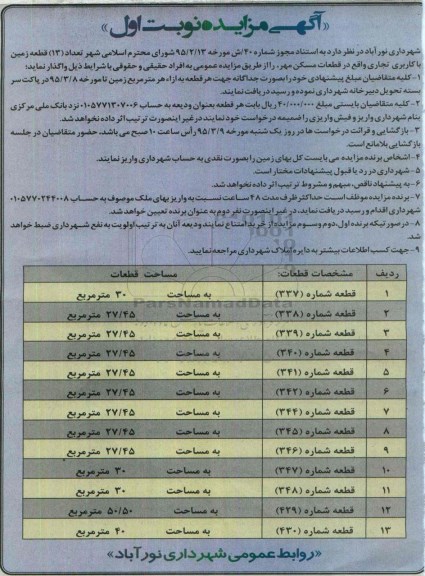 «آگهی مزایده نوبت اول»
شهرداری نورآباد در نظر دارد به استناد مجوز شماره ۴۰/ش مورخه ۹۵/۲/۱۳ شورای محترم اسلامی شهر تعداد (۱۳) قطعه زمین
با کاربری تجاری واقع در قطعات مسکن مهر، را از طریق مزایده عمومی به افراد حقیقی و حقوقی با شرایط ذیل واگذار نماید:
۱- کلیه متقاضیان مبلغ پیشنهادی خود را بصورت جداگانه جهت هر قطعه به ازاء هر متر مربع زمین تا مورخه ۹۵/۳/۸ در پاکت سر
بسته تحویل دبیرخانه شهرداری نموده و رسید دریافت نمایند.
۲- کلیه متقاضیان بایستی مبلغ ۴۰/۰۰۰/۰۰۰ ریال بابت هر قطعه بعنوان ودیعه به حساب ۰۱۰۵۷۷۱۳۰۷۰۰۶ نزد بانک ملی مرکزی
بنام شهرداری واریز و فیش واریزی را ضمیمه درخواست خود نمایند در غیر اینصورت ترتیب اثر داده نخواهد شد.
۳- بازگشایی و قرائت درخواست ها در روز یک شنبه مورخه ۹۵/۳/۹ رأس ساعت ۱۰ صبح می باشد، حضور متقاضیان در جلسه
بازگشایی بلامانع است.
۴- اشخاص برنده مزایده می بایست کل بهای زمین را بصورت نقدی به حساب شهرداری واریز نمایند.
۵- شهرداری در رد یا قبول پیشنهادات مختار است.
۶- به پیشنهاد ناقص، مبهم و مشروط ترتیب اثر داده نخواهد شد.
۷- برنده مزایده موظف است حداکثر ظرف مدت ۴۸ ساعت نسبت به واریز بهای ملک موصوف به حساب ۰۱۰۵۷۷۰۲۴۴۰۰۸
شهرداری اقدام و رسید دریافت نماید، در غیر اینصورت نفر دوم به عنوان برنده تعیین خواهد شد.
۸- در صورتیکه برنده اول، دوم و سوم مزایده از خرید امتناع نمایند ودیعه آنان به ترتیب اولویت به نفع شهرداری ضبط خواهد
شد.
۹- جهت کسب اطلاعات بیشتر به دایره املاک شهرداری مراجعه نمایید.
ردیف مشخصات قطعات: مساحت قطعات
۱ قطعه شماره (۳۳۷) به مساحت ۳۰ مترمربع
۲ قطعه شماره (۳۳۸) به مساحت ۲۷/۴۵ مترمربع
۳ قطعه شماره (۳۳۹) به مساحت ۲۷/۴۵ مترمربع
۴ قطعه شماره (۳۴۰) به مساحت ۲۷/۴۵ مترمربع
۵ قطعه شماره (۳۴۱) به مساحت ۲۷/۴۵ مترمربع
۶ قطعه شماره (۳۴۲) به مساحت ۲۷/۴۵ مترمربع
۷ قطعه شماره (۳۴۴) به مساحت ۲۷/۴۵ مترمربع
۸ قطعه شماره (۳۴۵) به مساحت ۲۷/۴۵ مترمربع
۹ قطعه شماره (۳۴۶) به مساحت ۲۷/۴۵ مترمربع
۱۰ قطعه شماره (۳۴۷) به مساحت ۳۰ مترمربع
۱۱ قطعه شماره (۳۴۸) به مساحت ۳۰ مترمربع
۱۲ قطعه شماره (۴۲۹) به مساحت ۵۰/۵۰ مترمربع
۱۳ قطعه شماره (۴۳۰) به مساحت ۴۰ مترمربع
«روابط عمومی شهرداری نورآباد»